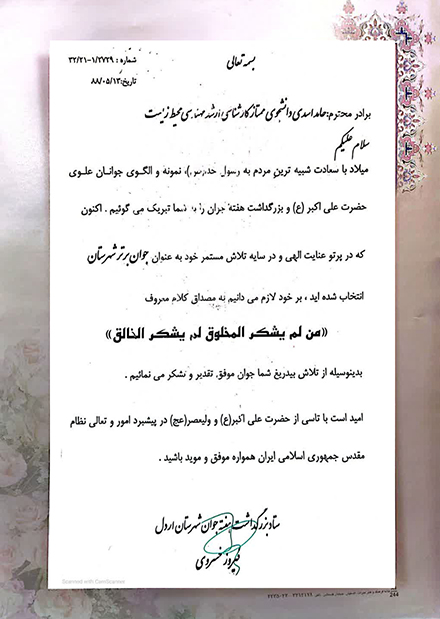 بسمه تعالی
شماره : ۳۲/۲۱-۱/۲۷۲۹
تاریخ: ۸۸/۰۵/۱۳
برادر محترم: حامد اسدی دانشجوی ممتاز کارشناسی ارشد مهندسی محیط زیست
سلام علیکم
میلاد با سعادت شبیه ترین مردم به رسول خدا(ص)، نمونه و الگوی جوانان علوی
حضرت علی اکبر (ع) و بزرگداشت هفته جوان را به شما تبریک می گوئیم . اکنون
که در پرتو عنایت الهی و در سایه تلاش مستمر خود به عنوان جوان برتر شهرستان
انتخاب شده اید ، بر خود لازم می دانیم به مصداق کلام معروف
«من لم یشکر المخلوق لم یشکر الخالق»
بدینوسیله از تلاش بیدریغ شما جوان موفق تقدیر و تشکر می نمائیم .
امید است با تاسی از حضرت علی اکبر(ع) و ولیعصر(عج) در پیشبرد امور و تعالی نظام
مقدس جمهوری اسلامی ایران همواره موفق و موید باشید .
ستاد بزرگداشت هفته جوان شهرستان اردل
فیروز خسروی
Scanned with CamScanner
244